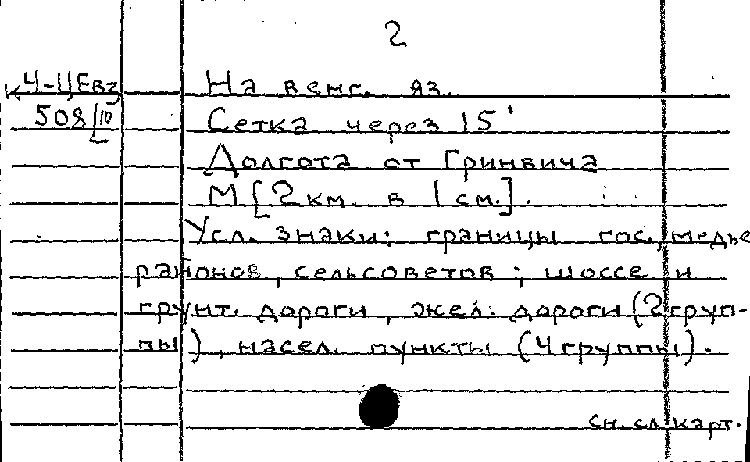 2
Ч-ЦЕвр На венг. яз.
508/10 Сетка через 15'
Долгота от Гринвича
М [2 км. в 1 см.].
Усл. знаки: границы гос., медье
районов, сельсоветов; шоссе и
грунт. дороги, жел. дороги (2 груп-
пы), насел. пункты (4 группы).
см. сл. карт.